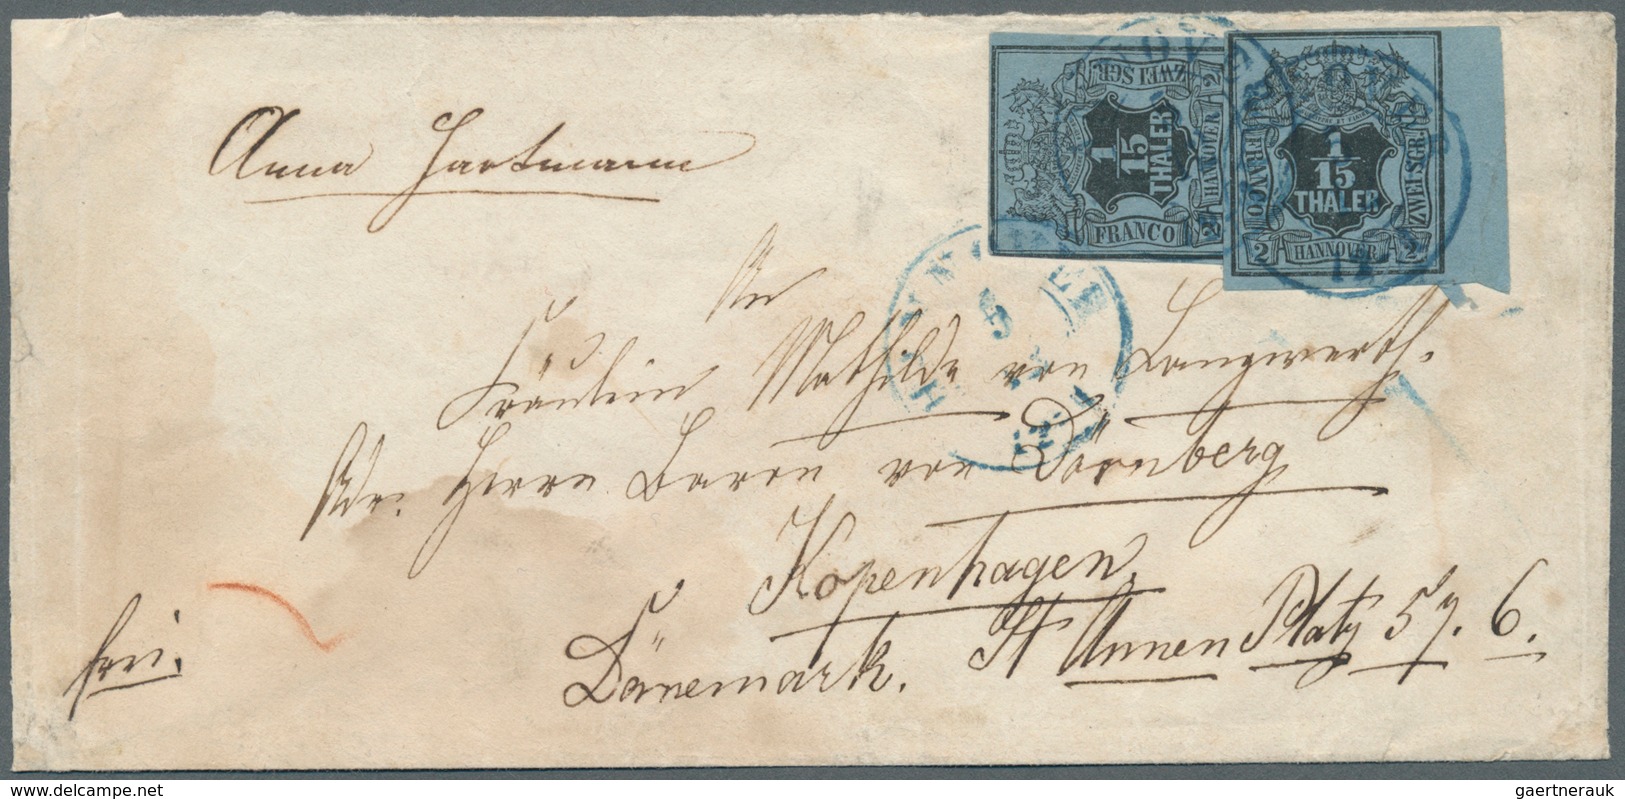 Anna Hartmann
ZWEI SGR.
1
15
THALER
HANNOVER
FRANCO
2
2
1
15
THALER
FRANCO
ZWEI SGR.
2
HANNOVER
2
An
Fräulein Mathilde von Langwerth.
Adr. Herrn Baron von Dörnberg
Kopenhagen,
Dänemark. St Annen Platz 57. 6.
frei.
HANNOVER
5
delcampe.net
gaertnerauk